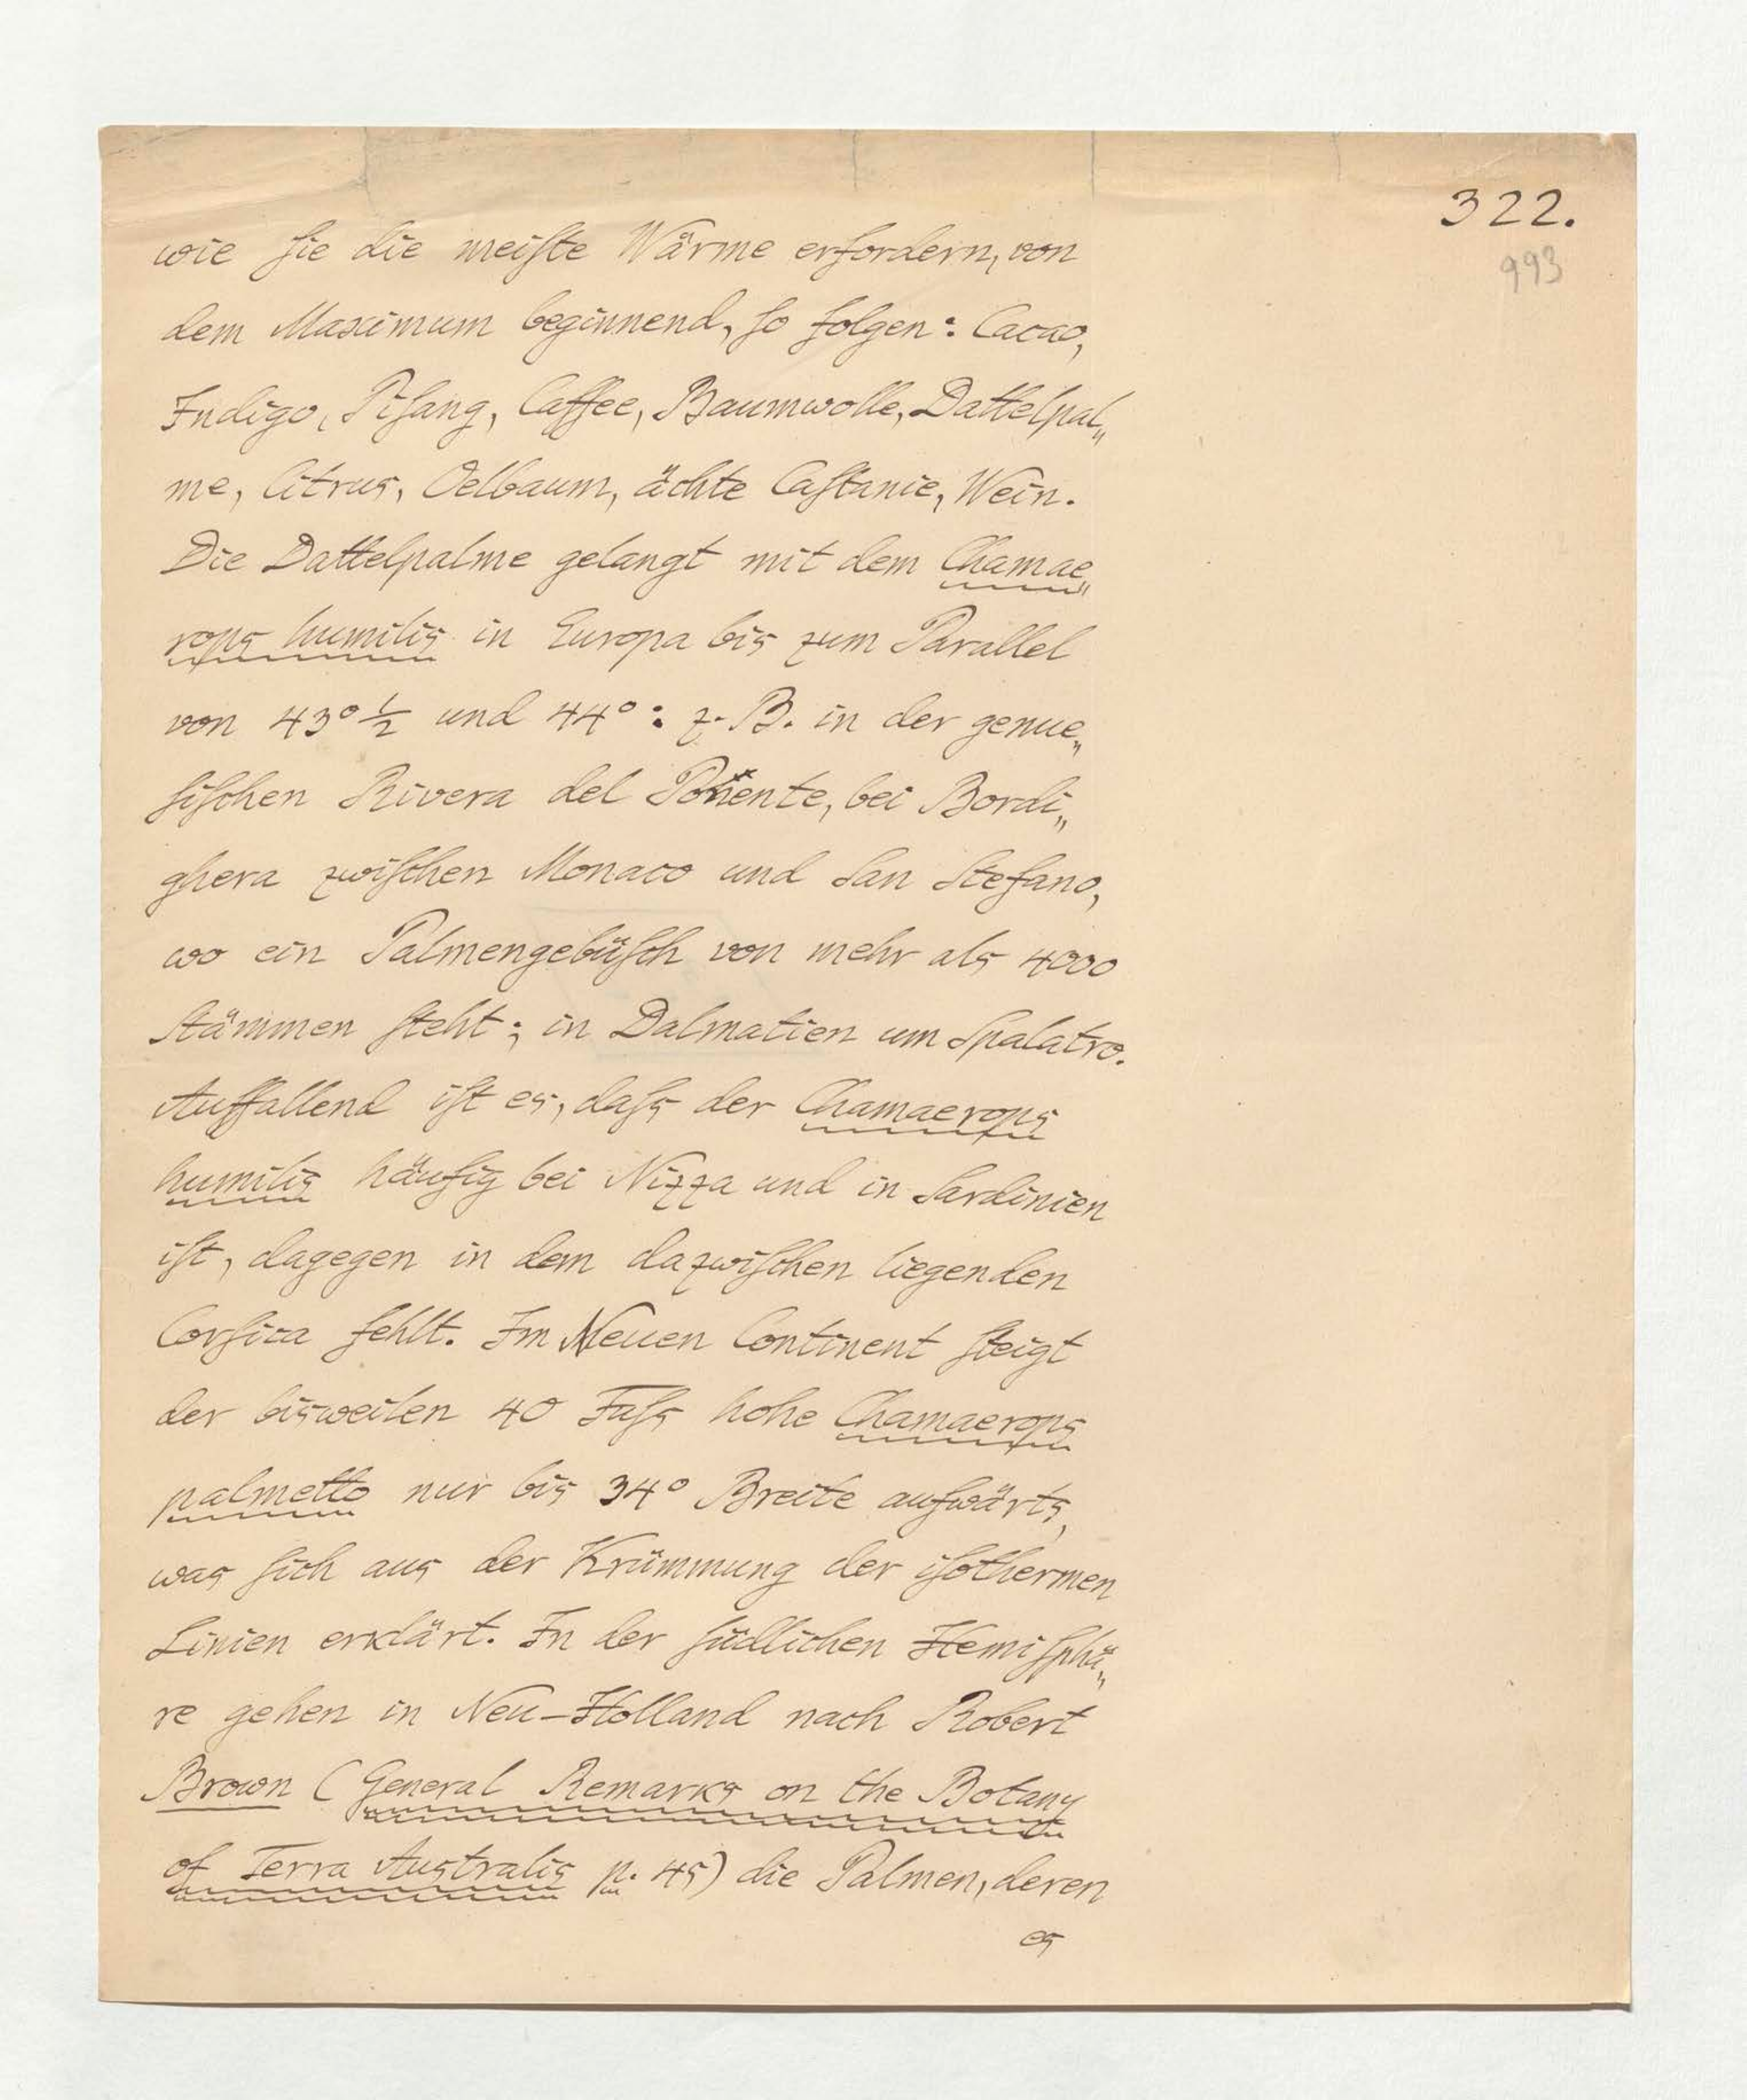 322.
993
wie ſie die meiſte Wärme erfordern, von
dem Maximum beginnend, ſo folgen: Cacao,
Indigo, Piſang, Caffee, Baumwolle, Dattelpal„
me, Citrus, Oelbaum, ächte Caſtanie, Wein.
Die Dattelpalme gelangt mit dem Chamae„
rops humilis in Europa bis zum Parallel
von 43° ½ und 44°: z. B. in der genue„
ſiſchen Rivera del Ponente, bei Bordi„
ghera zwiſchen Monaco und San Stefano,
wo ein Palmengebüſch von mehr als 4000
Stämmen ſteht; in Dalmatien um Spalatro.
Auffallend iſt es, daſs der Chamaerops
humilis häufig bei Nizza und in Sardinien
iſt, dagegen in dem dazwiſchen liegenden
Corſica fehlt. Im Neuen Continent ſteigt
der bisweilen 40 Fuſs hohe Chamaerops
palmetto nur bis 34° Breite aufwärts,
was ſich aus der Krümmung der iſothermen
Linien erklärt. In der ſüdlichen Hemiſphä„
re gehen in Neu-Holland nach Robert
Brown (General Remarks on the Botany
of Terra Australis p. 45) die Palmen, deren
es